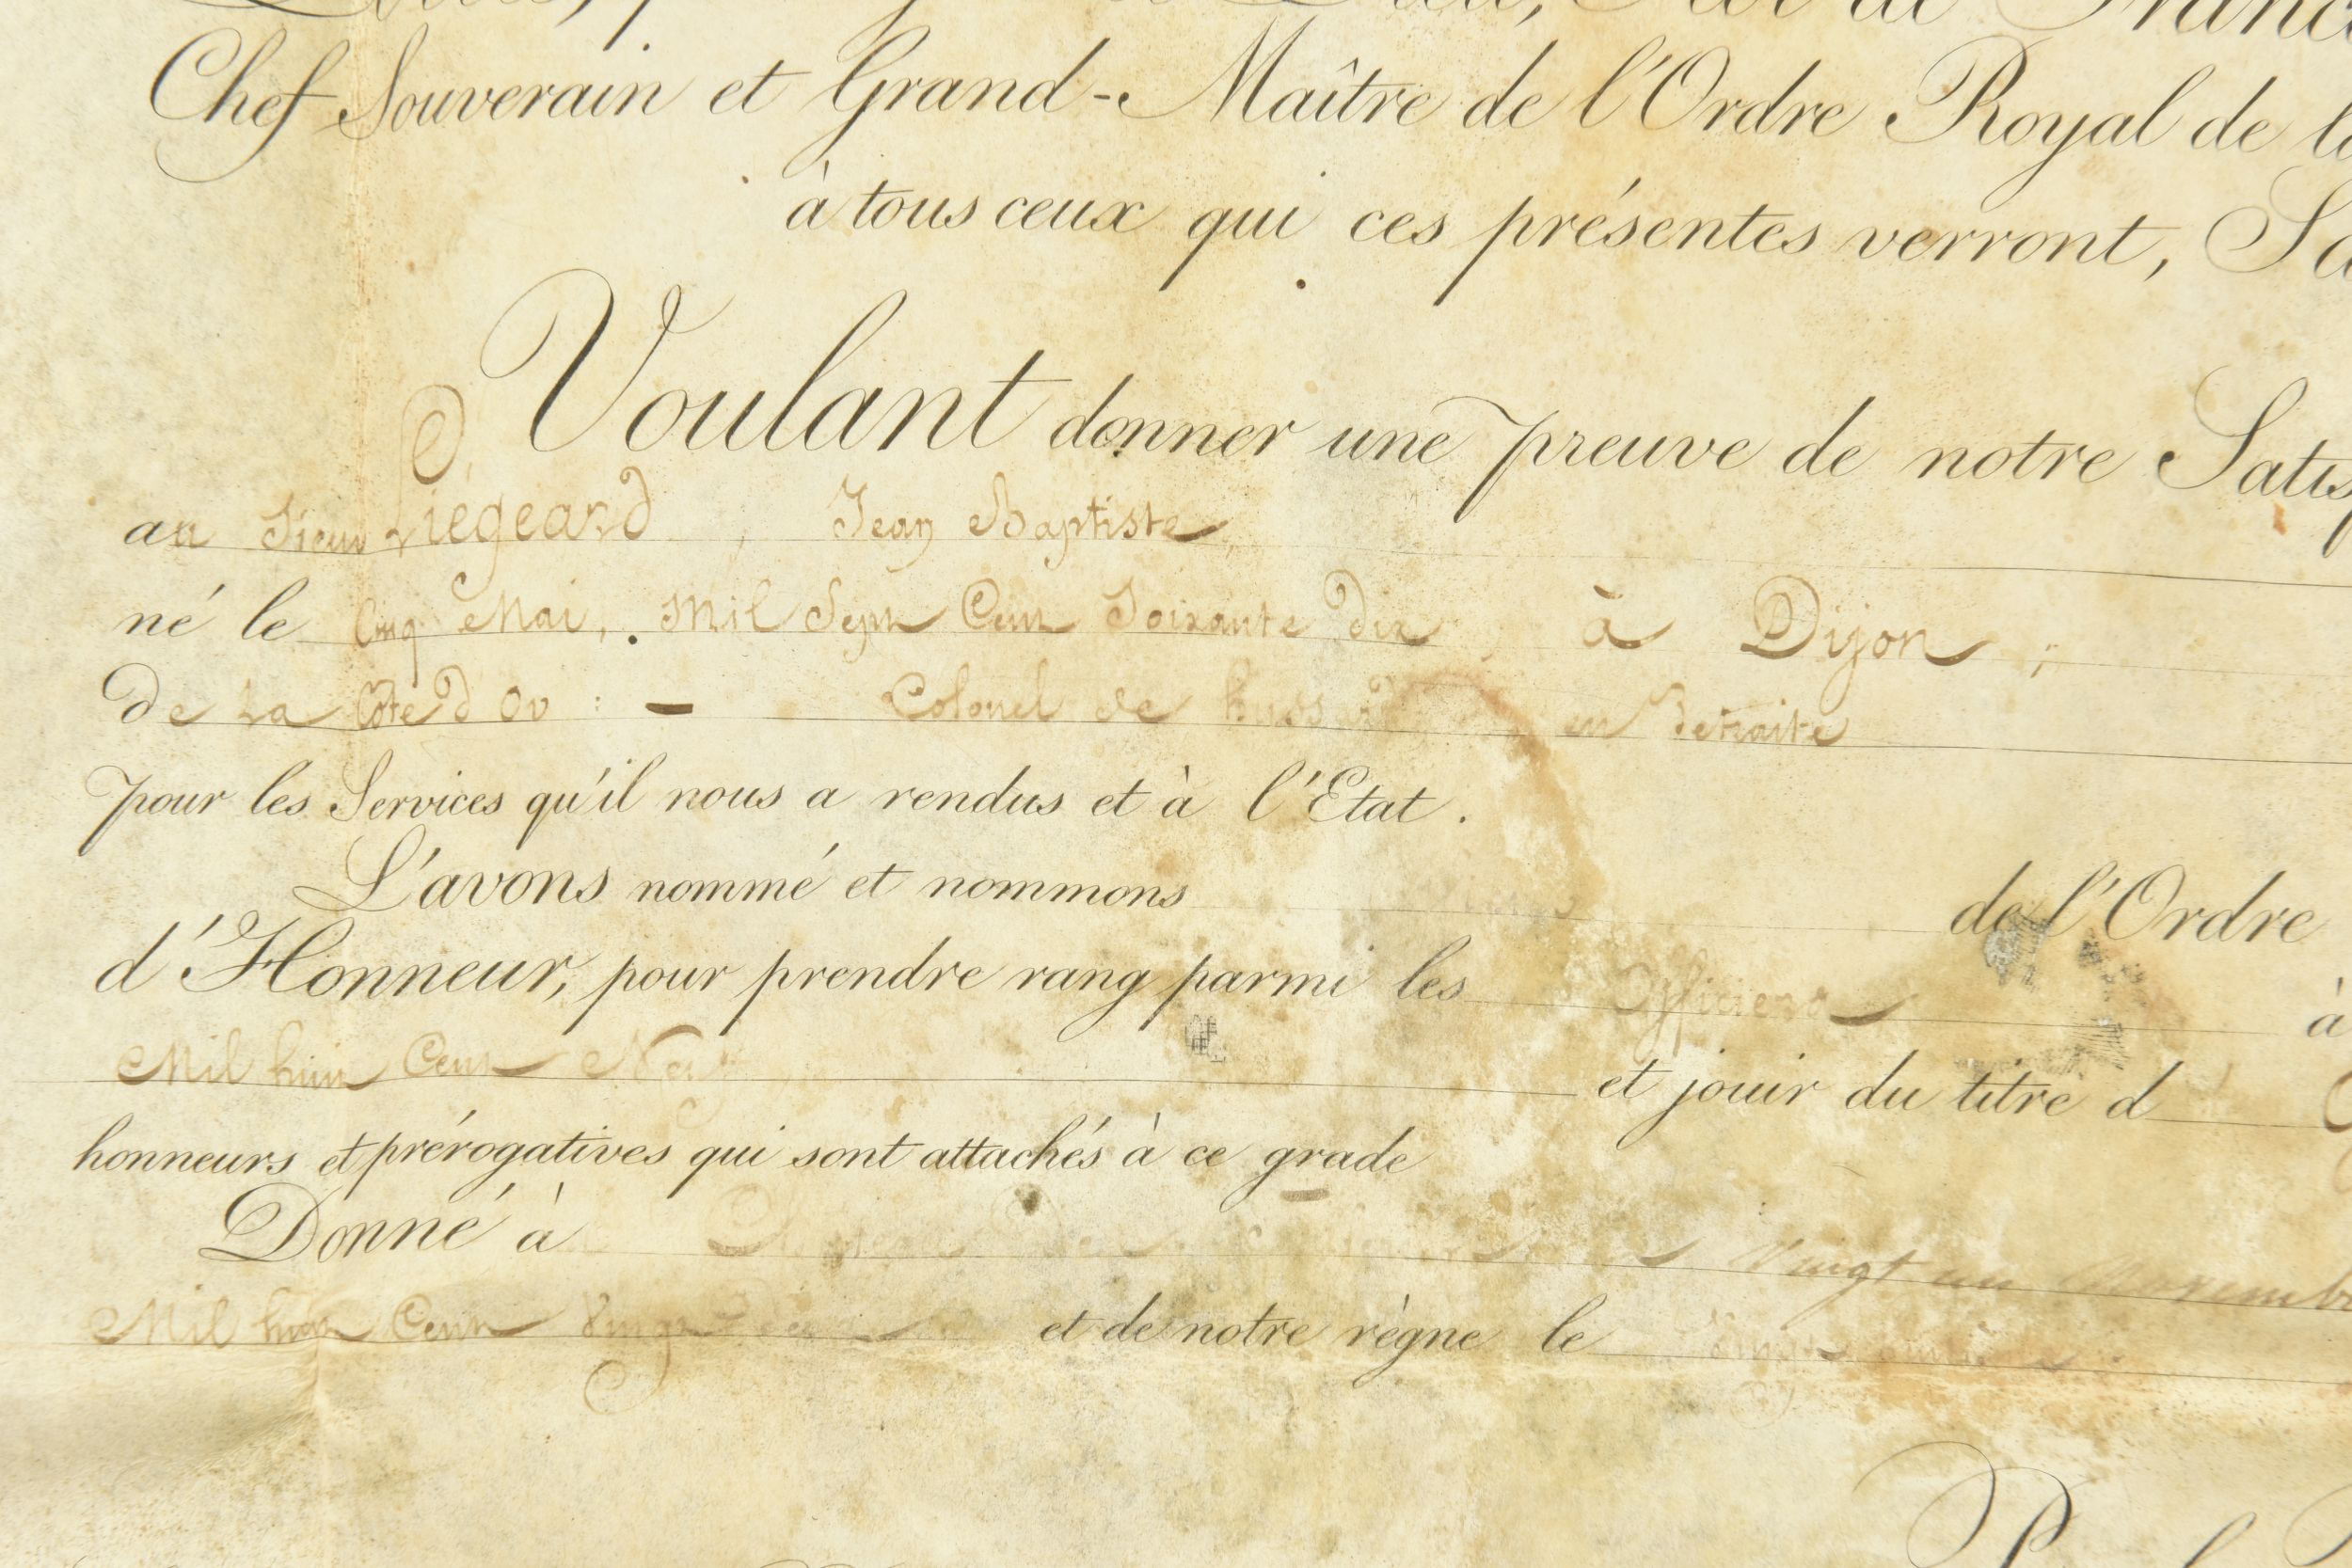 Chef Souverain et Grand-Maître de l'Ordre Royal de la
à tous ceux qui ces présentes verront, Sa
Voulant donner une preuve de notre Satis
au Sieur Liégeard, Jean Baptiste,
né le Cinq Mai, Mil Sept Cent Soixante dix à Dijon;
De La Côte d'Or : – Colonel de hussards en Retraite
pour les Services qu'il nous a rendus et à l'Etat.
L'avons nommé et nommons de l'Ordre
d'Honneur, pour prendre rang parmi les Officiers à
Mil huit Cent et jouir du titre d
honneurs et prérogatives qui sont attachés à ce grade
Donné à Vingt un Novemb
Mil huit Cent Vingt et de notre règne le Vingt